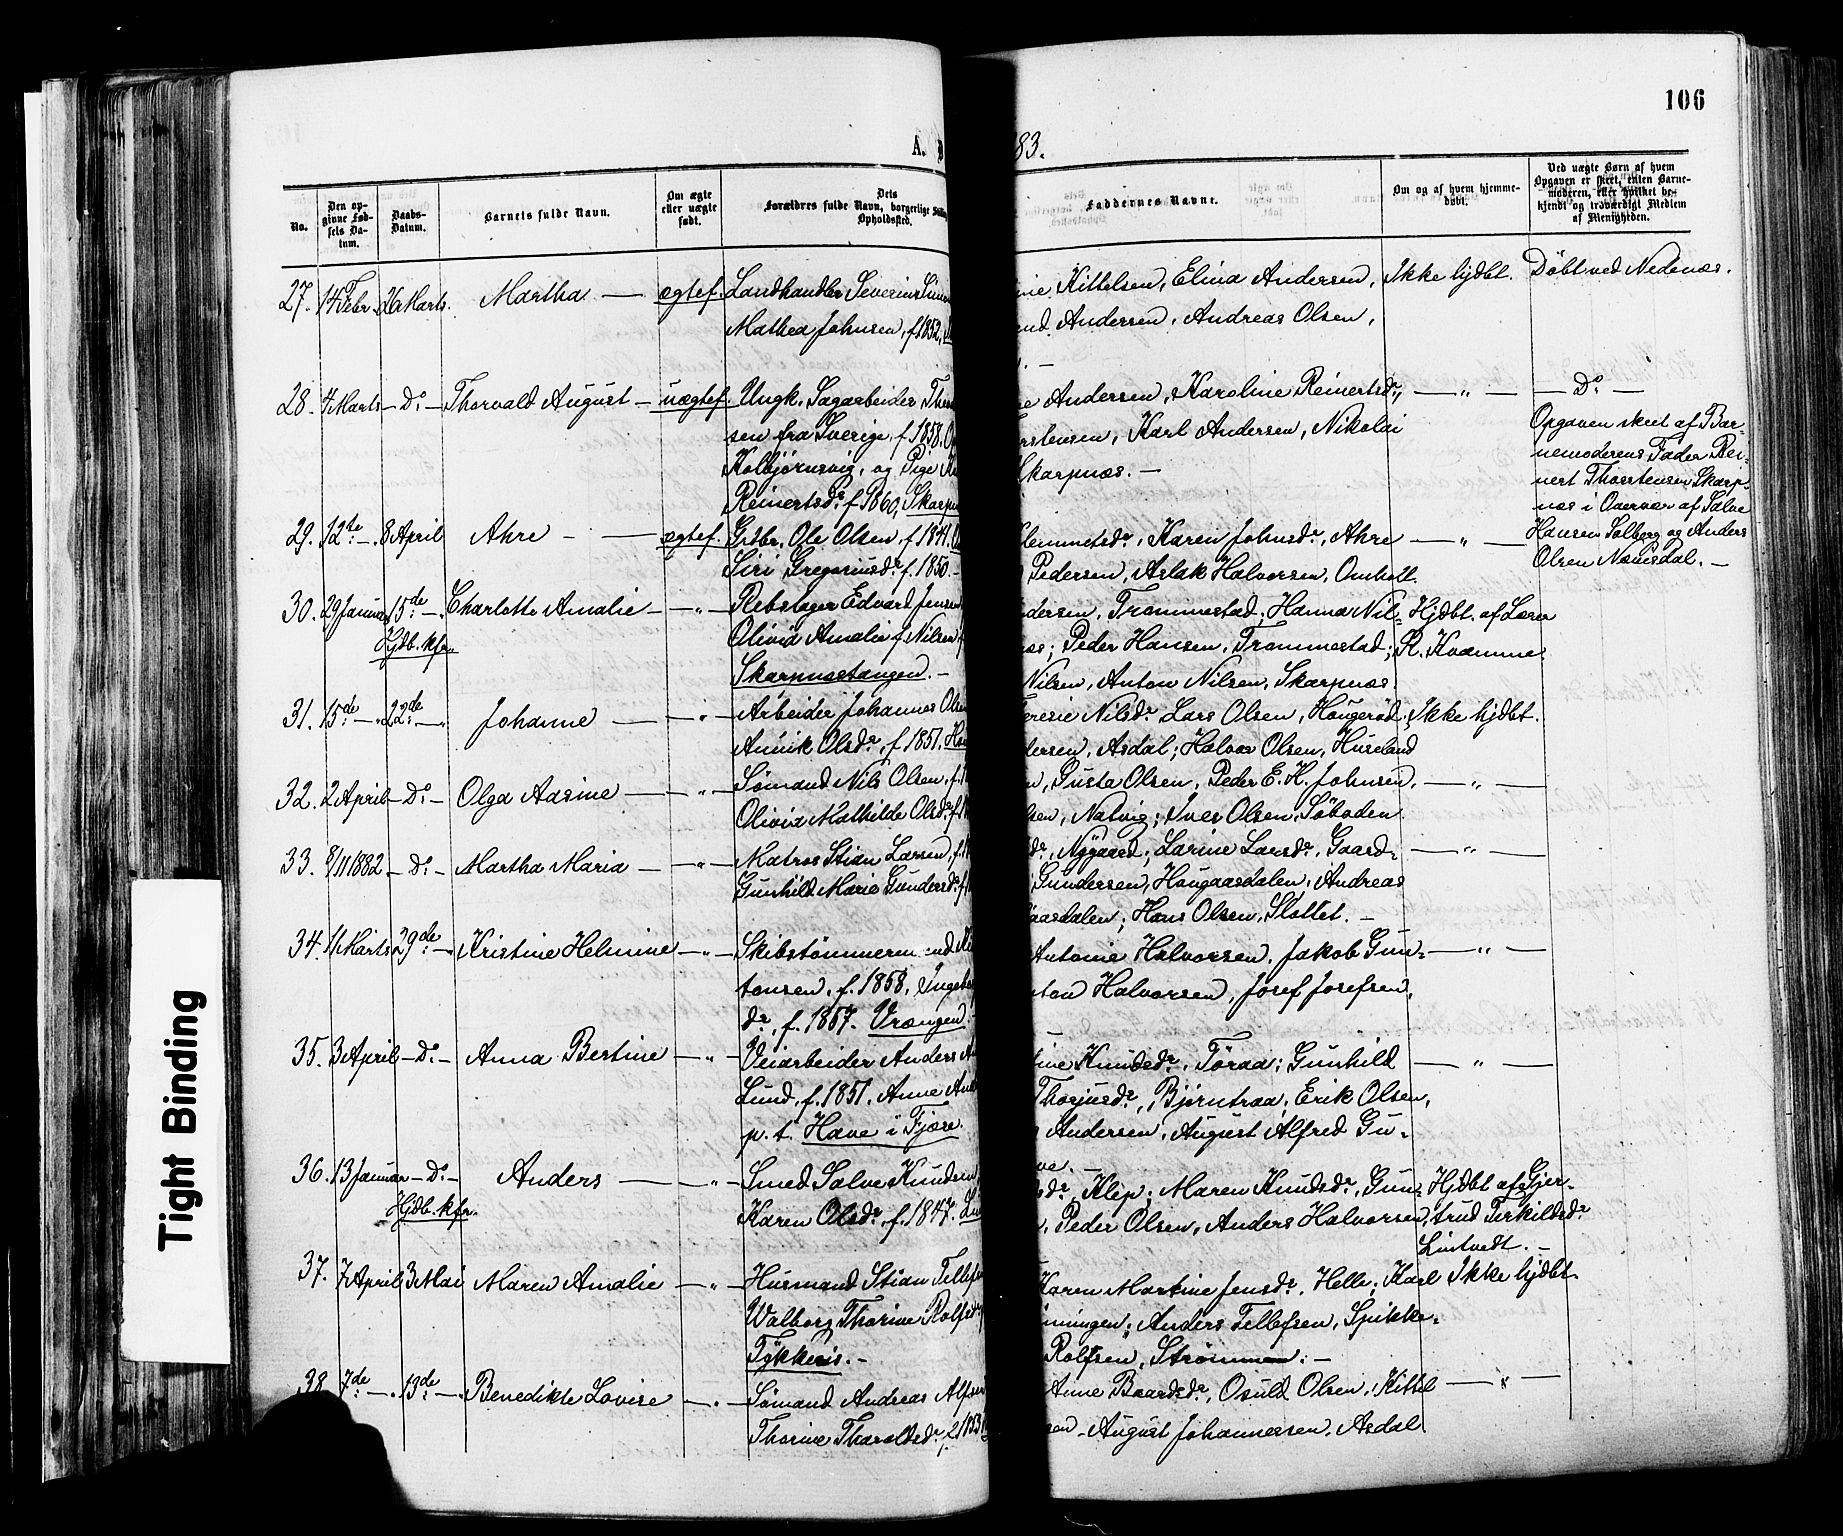 106
A. D
83.
No.
Den opgivne Fødsels Datum.
Daabs-Datum.
Barnets fulde Navn.
Om ægte eller uægte født.
Dets Forældres fulde Navn, borgerlige Stilling
Opholdssted.
Faddernes Navne.
Om og af hvem hjemmedøbt.
Ved uægte Børn af hvem Opgaven er skeet, enten Barnemoderen, eller hvilket bekjendt og troværdigt Medlem af Menigheden.
27. 14 Febr. 26 Marts. Martha — ægtef. Landhandler Severin
Mathea Johnsen, f. 1852,
Kittelsen, Elina Andersen, Ikke hjdbt. Döbt ved Nedenæs.
Andersen, Andreas Olsen,
28. 4 Marts — Do. — Thorvald August — uægtef. Ungk. Sagarbeider
sen fra Sverige, f. 1858.
Kolbjørnsvig, og Pige
Reinertsdr. f. 1860, Skarpn
Andersen, Karoline Reinertsdr., — " — — Do —
Karl Andersen, Nikolai
Skarpnæs. —
Opgaven skeet af Bar-
nemoderens Fader Rei-
nert Thorstensen Skarp-
næs i Overvær af Salve
Hansen Solberg og Anders
Olsen Næsdal. —
29. 12te — 8 April Ahre — ægtef. Grdbr. Ole Olsen, f. 1841.
Siri Gregoriusdr. f. 1850. —
Klemmetsdr., Karen Johnsdr., Ahre — " —
Pedersen, Aslak Halvorsen, Omholt.
30. 29 Januar 15de — Charlotte Amalie — " — Rebslager Edvard Jensen
Hjdb. kfr.
Olivia Amalie f. Nilsen,
Skarpnæstangen. —
dersen, Trommestad; Hanna Nil- Hjdbt. af Lærer
æs; Peder Hansen, Trommestad; K. Kvamme.
Nilsen, Anton Nilsen, Skarpnæs.
31. 15de — " 22de — " Johanne — " — Arbeider Johannes Olsen
Olsdr., f. 1851.
Nilsdr. Lars Olsen, Haugeröd; Ikke hjdbt.
dersen, Asdal; Halvor Olsen, Huseland
32. 2 April — Do. — Olga Aasine — " — Sømand Nils Olsen, f.
Olivia Mathilde Olsdr. f.
Gusta Olsen, Peder E. K. Johnsen, — " —
sen, Natvig; Iver Olsen, Söboden
33. 8/11 1882 — Do. — Martha Maria — " — Matros Stian Larsen, f.
Gunhild Marie Gundersdr. f.
dr., Nygaard, Larine Larsdr., Gaard- — " —
Gundersen, Haugaasdalen, Andreas
aasdalen; Hans Olsen, Slottet. —
34. 11 Marts 29de — " Kristine Helmine — " — Skibstömmermand
tonsen, f. 1858, Ingeb
dr., f. 1857. Vrængen.
Antonie Halvorsen, Jakob Gun- — " —
Halvorsen, Josef Josefsen,
35. 3 April — Do. — Anna Bertine — " — Veiarbeider Anders
Lund, f. 1851, Anne
p. t. Have i Fjære.
Knudsdr., Töraa; Gunhild — " —
Thorjusdr., Björntraa; Erik Olsen,
Andersen, August Alfred Gu-
36. 13 Januar — Do. — Anders — " — Smed Salve Knudsen
Hjdb. kfr.
Karen Olsdr. f. 1847.
dr., Klep; Maren Knudsdr., Gun- Hjdbt af Gjer-
Peder Olsen, Anders Halvorsen, trud Terkildsdr.
Lintvedt. —
37. 7 April 3 Mai Maren Amalie — " — Husmand Stian Tellefsen
Valborg Thorine Rolfsdr.
Tykkeris. —
Karen Martine Jensdr., Helle; Karl Ikke hjdbt.
Anders Tellefsen, Spikke-
Rolfsen, Strömmen; —
38. 7de — 13de — " Benedikte Lovise — " — Sømand Andreas Alfsen
Thorine Tharaldsdr., f. 1853
Anne Baardsdr., Osuld Olsen, Kittel — " —
August Johannessen, Asdal.
Tight Binding